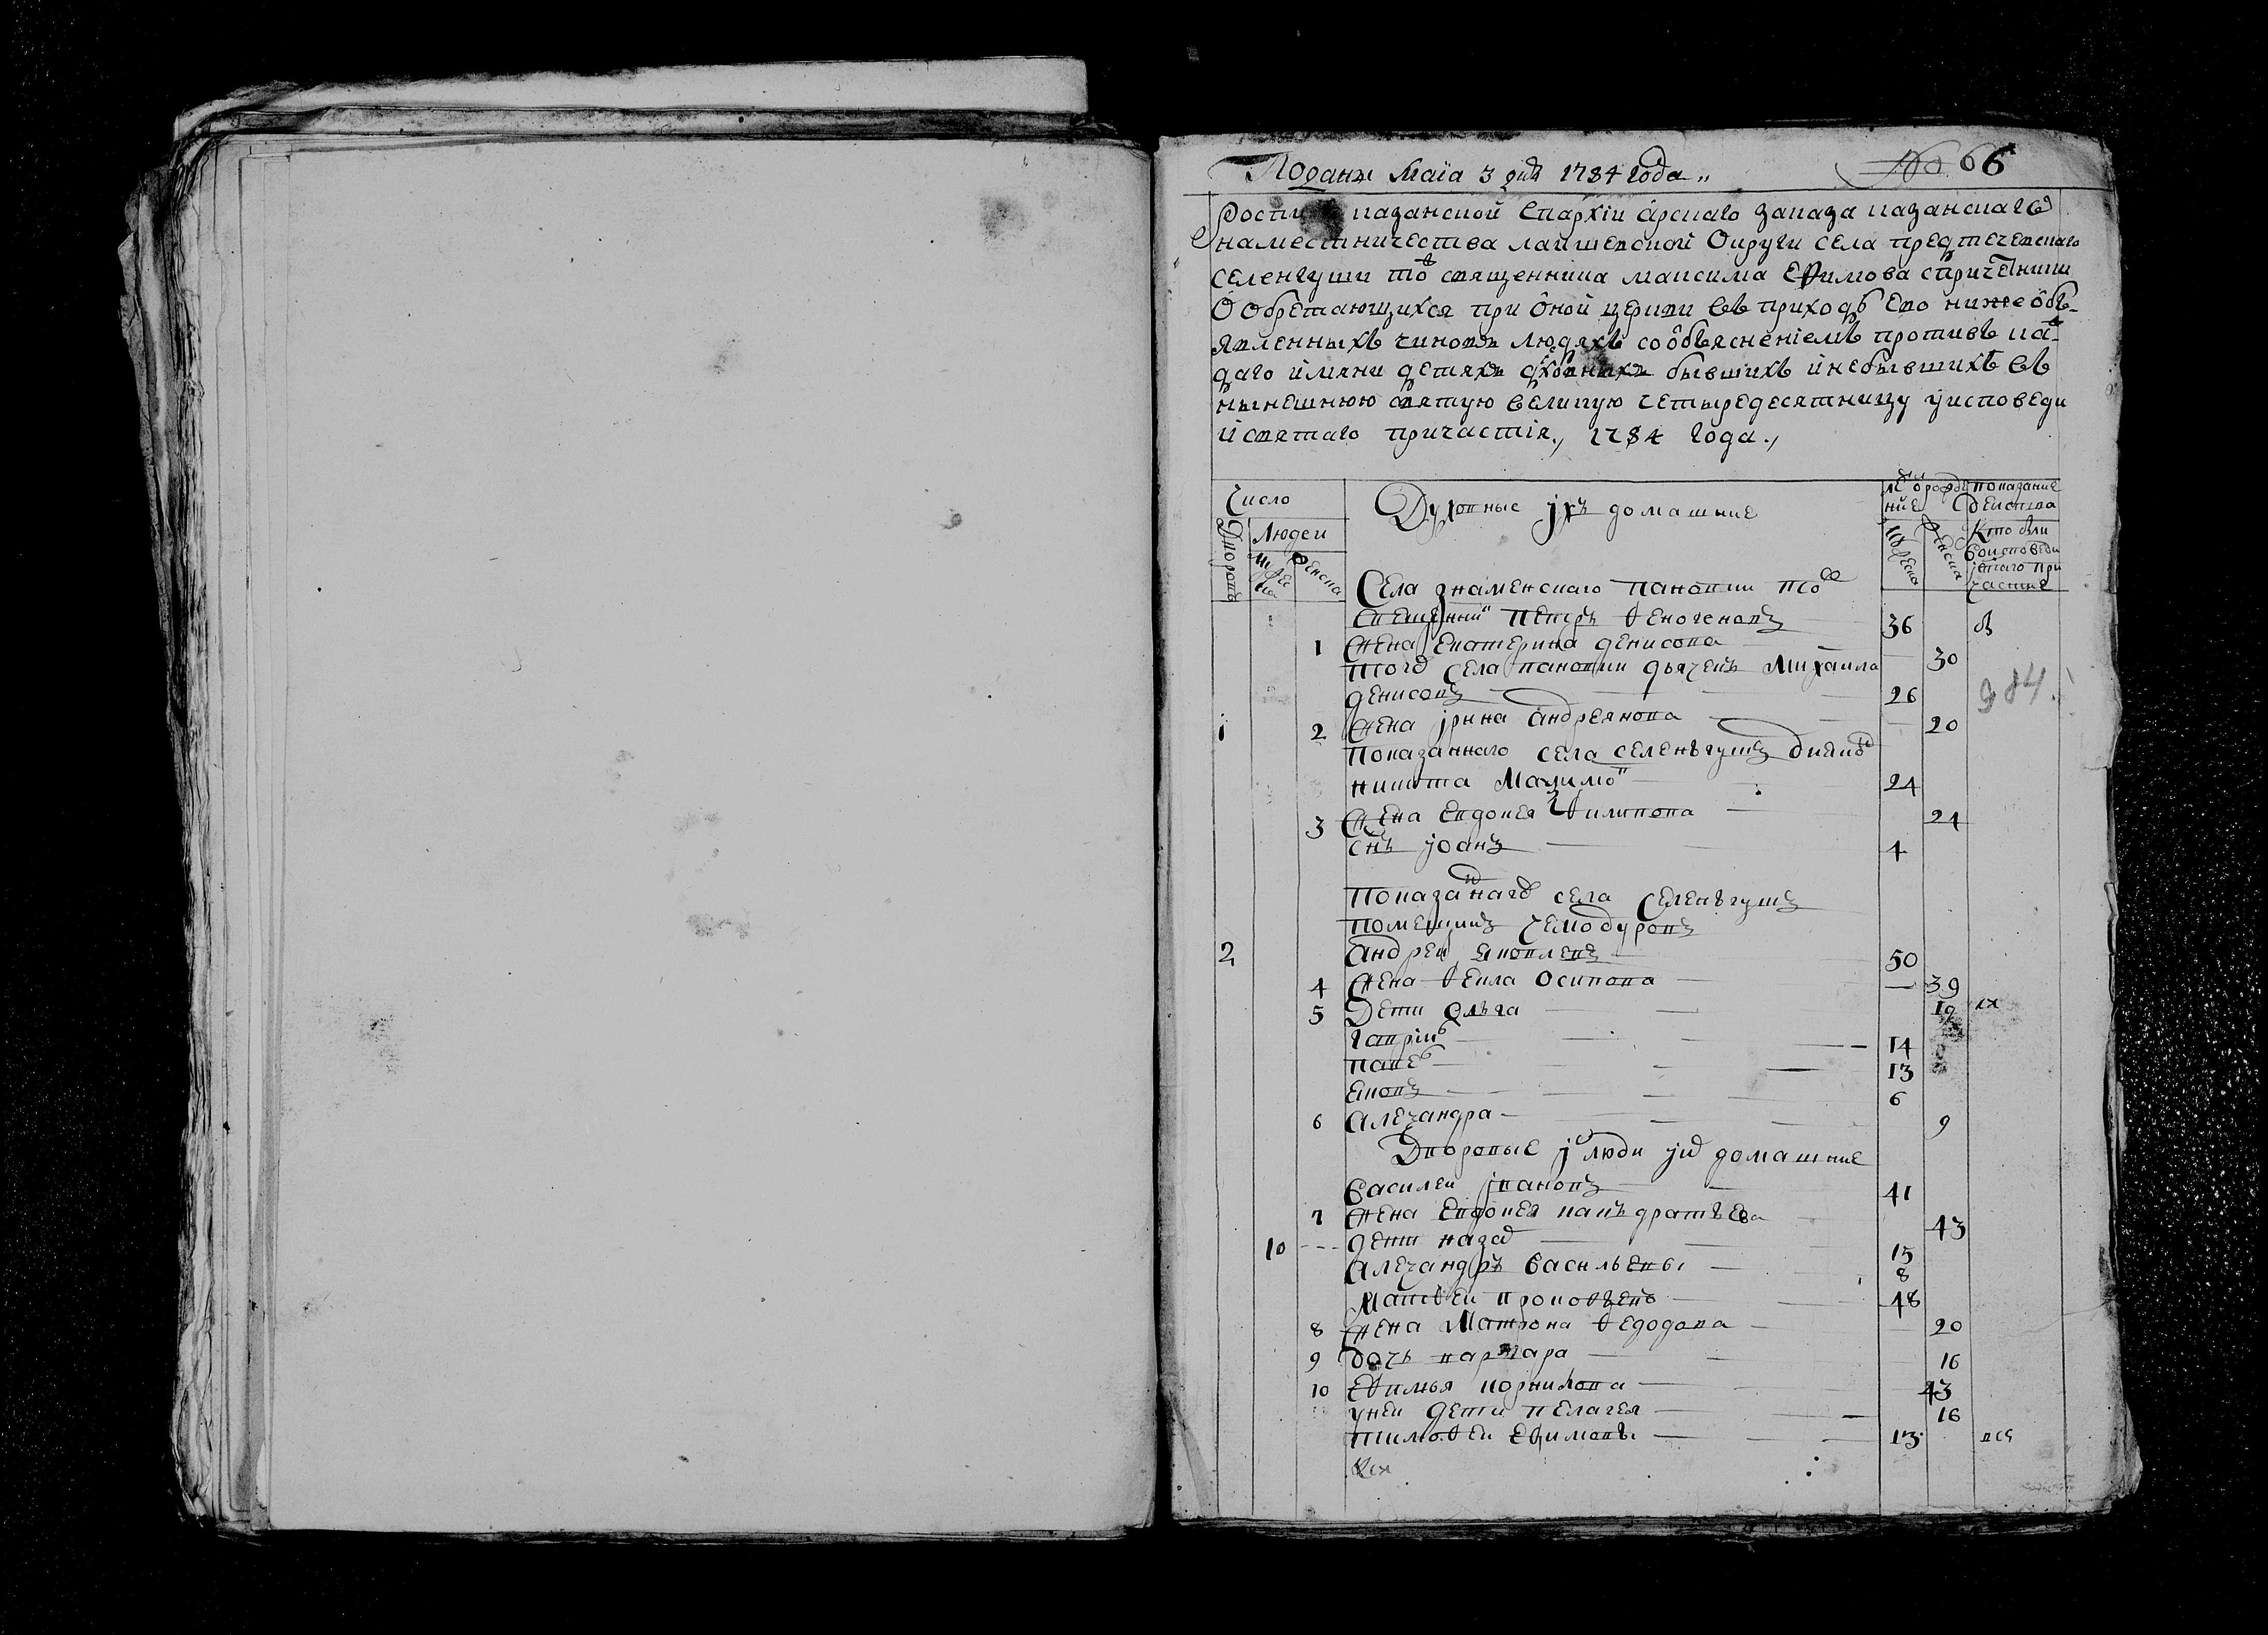 Поданы Маїа 3 дня 1784 года
№ 66
казанской Епархїи арскаго заказа казанскаго
наместничества лаишевской Округи села предтеченскаго
селенгуши то священника максима Ефимова спричетники
О Обретающихся при Оной церкви въ приходѣ Ево ниже объ-
явленныхъ чиновъ людяхъ сообъясненїемъ противъ ка-
даго имяни детяхъ духовныхъ бывшихъ инебывшихъ въ
нынешнюю святую великую четыредесятницу уисповеди
исвятаго причастїя, 1784 года.,
Число
Духовные ихъ домашние
показание
Действа
Людеи
Дворовъ
женска
Кто были
воисповеди
Села знаменскаго пановки
частие
Петръ Ѳеногеновъ 36
1 жена Екатерина денисова 30
того села пановки дьячекъ Михаила
денисовъ 26
984.
1 2 жена ірина андреянова 20
показаннаго села селенъгушъ
никита Мазимо 24
3 жена Евдокея Ѳилипова 24
снъ Іоанъ 4
показанаго села Селенъгушъ
помещикъ Чемодуровъ
2 андреи яковлевъ 50
4 жена Ѳекла Осипова 39
5 Дети Ольга 19
гаврил 14
паве 13
яковъ 6
6 алезандра 9
Дворовые люди домашние
василеи івановъ 41
7 жена Евдокея канъдратьева 43
10 дети назар 15
алезандръ васильевы 8
Матвеи прокоѳьевъ 48
8 жена Матрона Ѳедодова 20
9 дочь варвара 16
10 Еѳимья корнилова 43
унеи дети пелагея 16
тимоѳеи Еѳимовъ 13